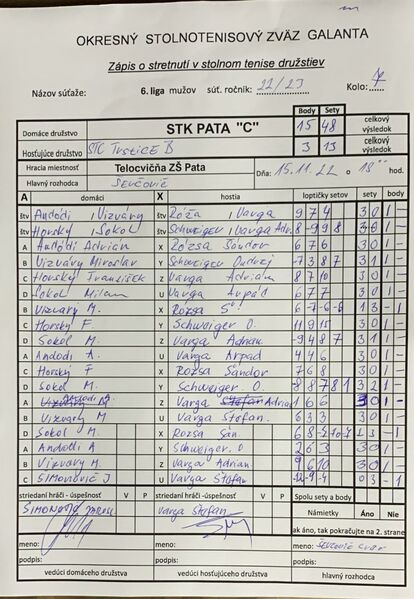 OKRESNÝ STOLNOTENISOVÝ ZVÄZ GALANTA
Zápis o stretnutí v stolnom tenise družstiev
Názov súťaže: 6. liga mužov súť. ročník: 22/23 Kolo: 7
Body Sety
Domáce družstvo STK PATA "C" 15 48 celkový výsledok
Hosťujúce družstvo STC TRSTICE B 3 13 celkový výsledok
Hracia miestnosť Telocvičňa ZŠ Pata Dňa: 15.11.22 o 18°° hod.
Hlavný rozhodca
A domáci X hostia loptičky setov sety body
štv Andódi , Vizváry štv Rózsa , Varga 9 7 4 3 0 1 -
štv Horský , Sokol štv Schweiger , Varga Adr. 8 -9 9 8 3 1 1 -
A Andódi Adrian X Rózsa Sándor 6 7 6 3 0 1 -
B Vizváry Miroslav Y Schweiger Ondrej -7 3 8 7 3 1 1 -
C Horský František Z Varga Adrián 8 7 10 3 0 1 -
D Sokol Milan U Varga Arpád 6 7 7 3 0 1 -
B Vizváry M. X Rózsa 6 -7 -6 -6 1 3 - 1
C Horský F. Y Schweiger O. 11 9 15 3 0 1 -
D Sokol M. Z Varga Adrian -9 4 8 7 3 1 1 -
A Andodi A. U Varga Arpad 4 4 6 3 0 1 -
C Horský F X Rozsa Sándor 7 6 8 3 0 1 -
D Sokol M. Y Schweiger O. -8 8 7 -8 1 3 2 1 -
A Andodi A. Z Varga Adrian 1 6 6 3 0 1 -
B Vizváry M U Varga Štefan 6 3 3 3 0 1 -
D Sokol M. X Rozsa Sán 1 3 - 1
A Andódi A Y Schweiger O. 2 6 3 3 0 1 -
B Vizváry M. Z Varga Adrian 9 6 10 3 0 1 -
C Simonovič J U Varga Štefan -12 -9 -4 0 3 - 1
striedaní hráči -úspešnosť V P striedaní hráči -úspešnosť V P Spolu sety a body
Varga Štefan Námietky Áno Nie
ak áno, tak pokračujte na 2. strane
meno: meno: meno:
podpis: podpis: podpis:
vedúci domáceho družstva vedúci hosťujúceho družstva hlavný rozhodca